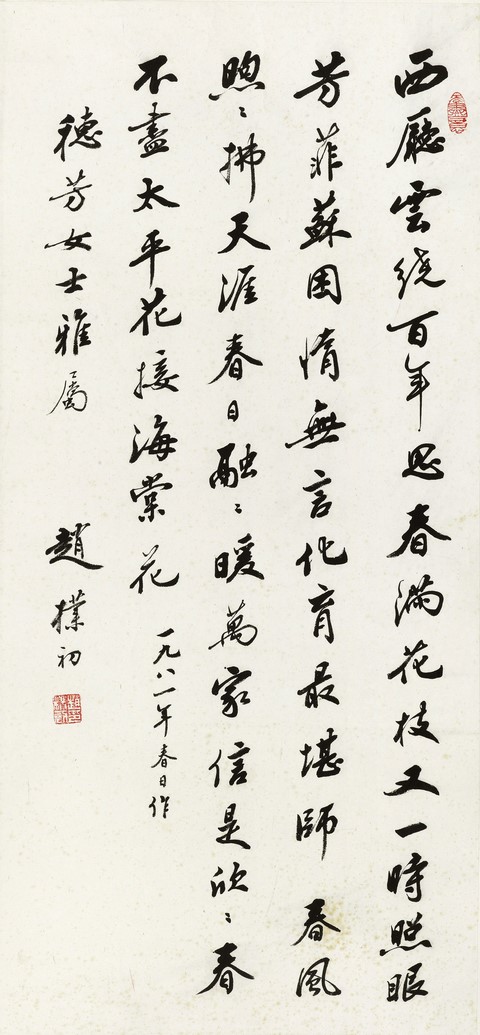 西廳雲繞百年思春滿花枝又一時照眼
芳菲蘇困惰無言化育最堪師 春風
煦〻拂天涯春日融〻暖萬家信是欣〻春
不盡太平花接海棠花
一九八一年春日作
穗芳女士雅屬
趙樸初